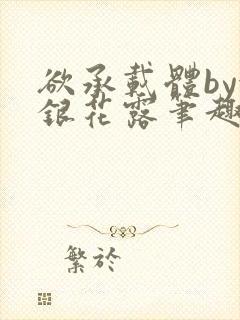 欲承载體by
銀花露筆趣
繁於